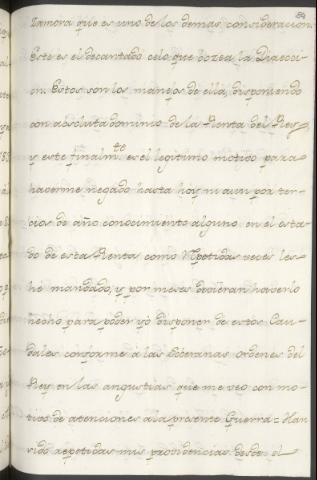 Zamora que es uno de los demas consideracion.
Este es el decantado celo que vozea la Direcci-
on. Estos son los manejos de ella, disponiendo
con absoluto dominio de la Renta del Rey
y este finalm.te es el legitimo motivo para
haverme negado hasta hoy ni aun por ter-
cios de año conocimiento alguno en el esta-
do de esta Renta como repetidas veces les
hé mandado, y por meses devieran haverlo
hecho para poder yó disponer de estos Cau-
dales conforme á las Soberanas ordenes del
Rey en las angustias que me veo con mo-
tivo de atenciones a la presente Guerra = Han
sido repetidas mis providencias desde el